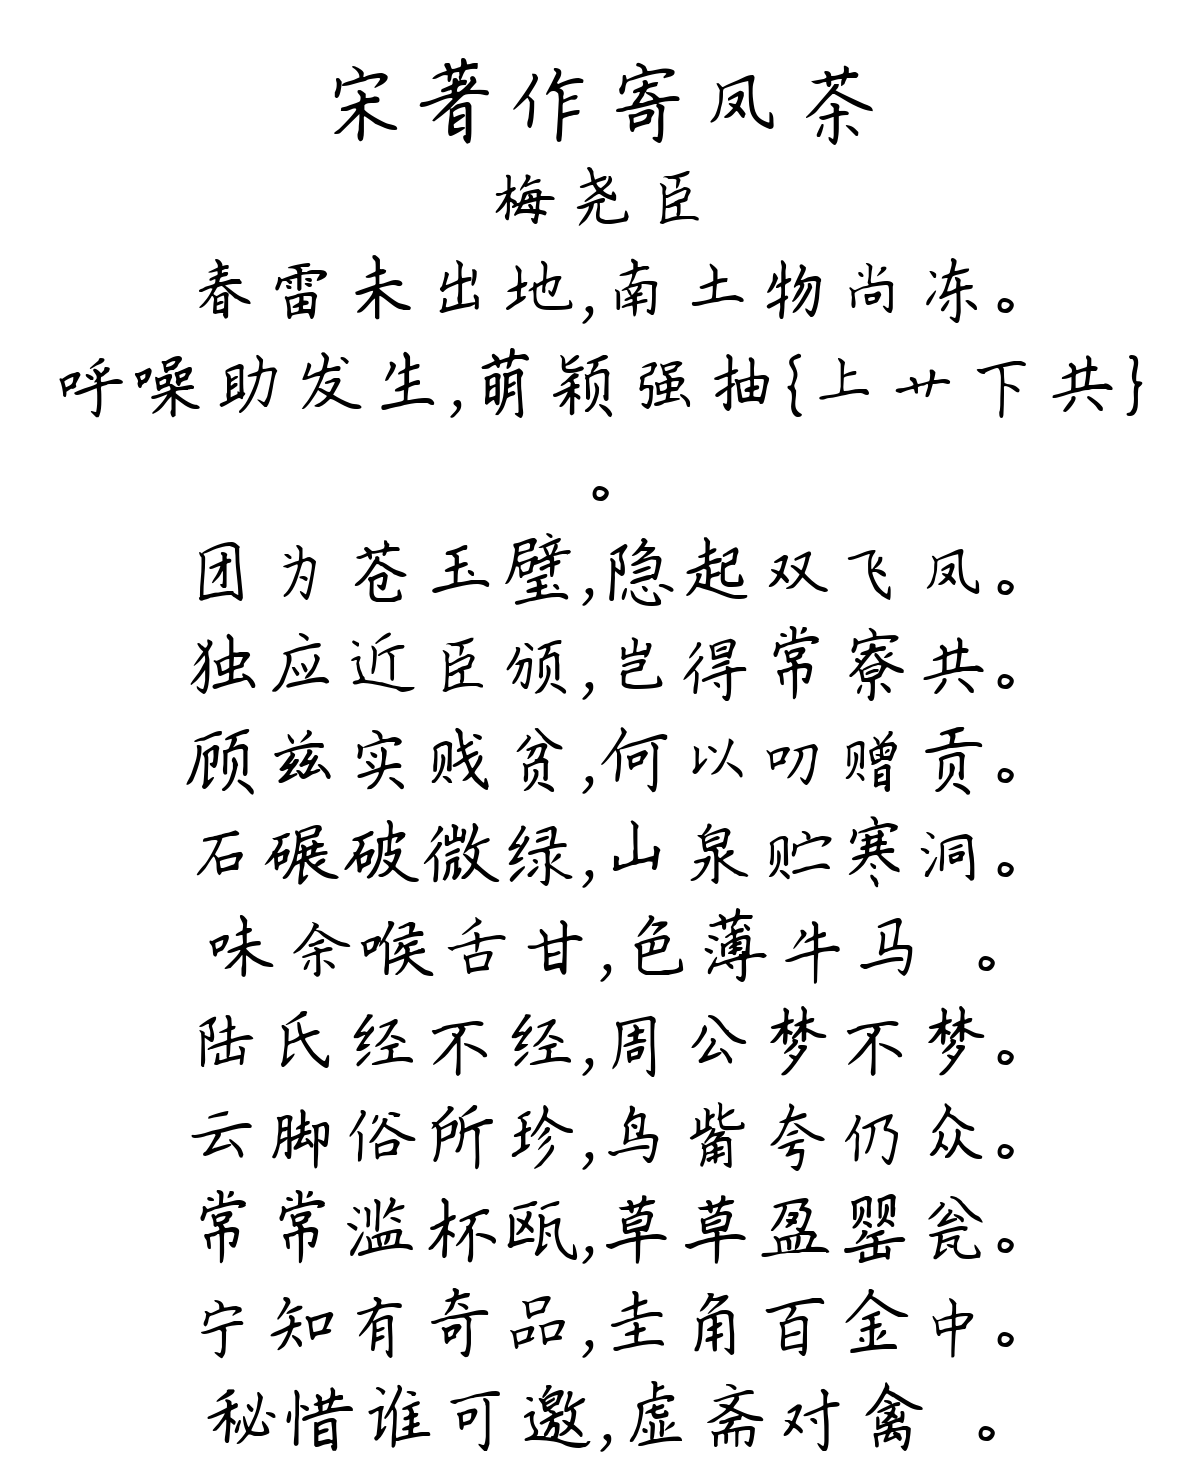 宋著作寄凤茶
梅尧臣
春雷未出地,南土物尚冻。
呼噪助发生,萌颖强抽{上艹下共}
。
团为苍玉璧,隐起双飞凤。
独应近臣颁,岂得常寮共。
顾兹实贱贫,何以叨赠贡。
石碾破微绿,山泉贮寒洞。
味余喉舌甘,色薄牛马 。
陆氏经不经,周公梦不梦。
云脚俗所珍,鸟觜夸仍众。
常常滥杯瓯,草草盈罂瓮。
宁知有奇品,圭角百金中。
秘惜谁可邀,虚斋对禽 。